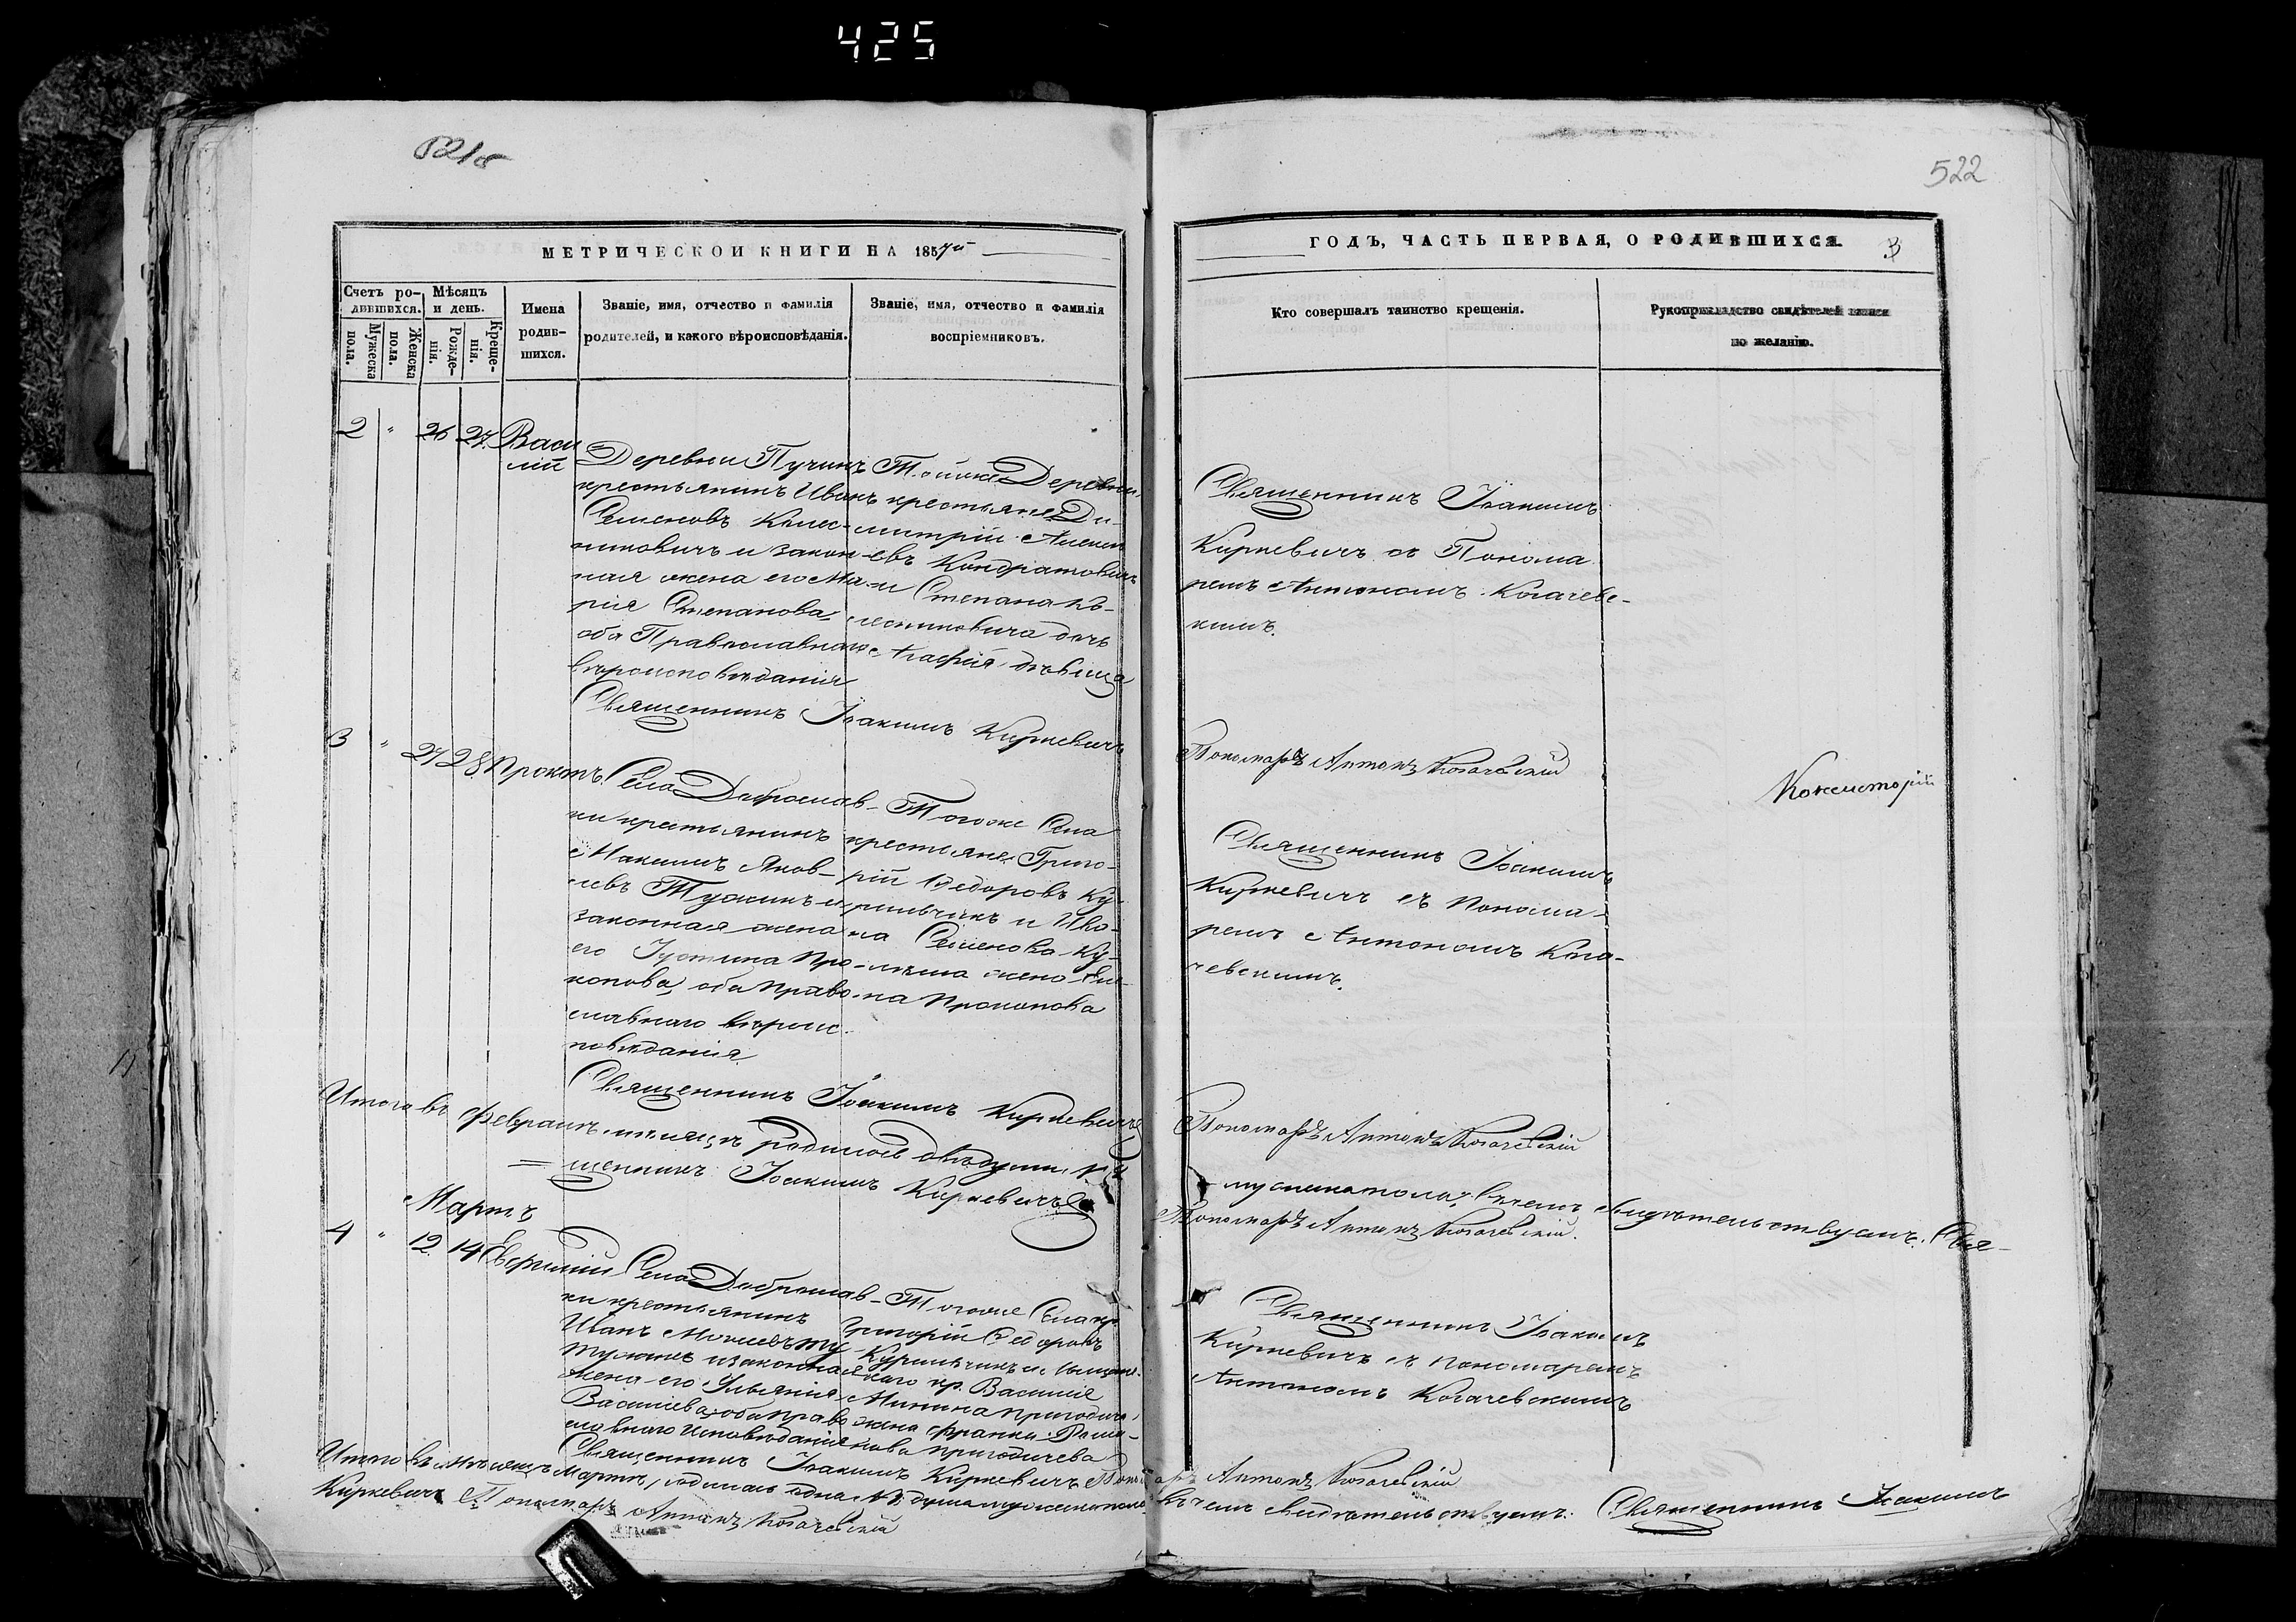 425
521б
522
МЕТРИЧЕСКОЙ КНИГИ НА 1857й
ГОДЪ, ЧАСТЬ ПЕРВАЯ, О РОДИВШИХСЯ.
3
Счетъ ро-
дившихся.
Мужеска
пола.
Женска
пола.
Мѣсяцъ
и день.
Рожде-
нія.
Креще-
нія.
Имена
родив-
шихся.
Званіе, имя, отчество и фамилія
родителей, и какого вѣроисповѣданія.
Званіе, имя, отчество и фамилія
воспріемниковъ.
Кто совершалъ таинство крещенія.
Рукоприкладство свидѣтелей записи
по желанію.
2 " 26 27 Васи
лій
Деревни Пучинъ
крестьянинъ Иванъ
Семеновъ Колес-
никовичъ и закон-
ная жена его Ма-
рія Степанова,
оба Православнаго
вѣроисповѣданія
Тойже Деревни
крестьяне Ди-
митрій Алексѣ-
евъ Кондратовичъ
и Степана Ко-
лесниковича дочь
Агафія дѣвица
Священникъ Іоакимъ
Киркевичъ съ Понома
ремъ Антономъ Когачевс-
кимъ.
Священникъ Іоакимъ Киркевичъ
Пономарь Антонъ Когачевскій
Консисторіи
3 " 27 28 Прокопъ
Села Доброслав-
ки крестьянинъ
Максимъ Яков-
левъ Тужикъ и
законная жена
его Іустина Про-
копова, оба Право-
славнаго вѣроис-
повѣданія
Тогоже Села
крестьяне Григо-
рій Ѳедоровъ Ку-
рильчикъ и Ива-
на Семенова
жена
Прокопова
Священникъ Іоакимъ
Киркевичъ съ Понома-
ремъ Антономъ Кога-
чевскимъ.
Священникъ Іоакимъ Киркевичъ
Пономарь Антонъ Когачевскій
Итого въ Февралѣ мѣсяцѣ родилось двѣ души
мужеска пола, въ чемъ свидѣтельствуемъ. Свя-
щенникъ Іоакимъ Киркевичъ
Пономарь Антонъ Когачевскій.
Мартъ
4 " 12 14 Евфимій
Села Доброслав-
ки крестьянинъ
Иванъ Моисеевъ
Тужикъ и законная
жена его Ульянія
Васильева, оба право
славнаго исповѣданія
Тогоже Села кр.
Григорій Ѳедоровъ
Курильчикъ и
кр. Василія
Минина
жена
Священникъ Іоакимъ
Киркевичъ съ Пономаремъ
Антономъ Когачевскимъ
Священникъ Іоакимъ Киркевичъ Пономарь Антонъ Когачевскій
Итого въ мѣсяцѣ Мартѣ родилась одна душа мужеска пола въ чемъ свидѣтельствуемъ. Священникъ Іоакимъ
Киркевичъ Пономарь Антонъ Когачевскій